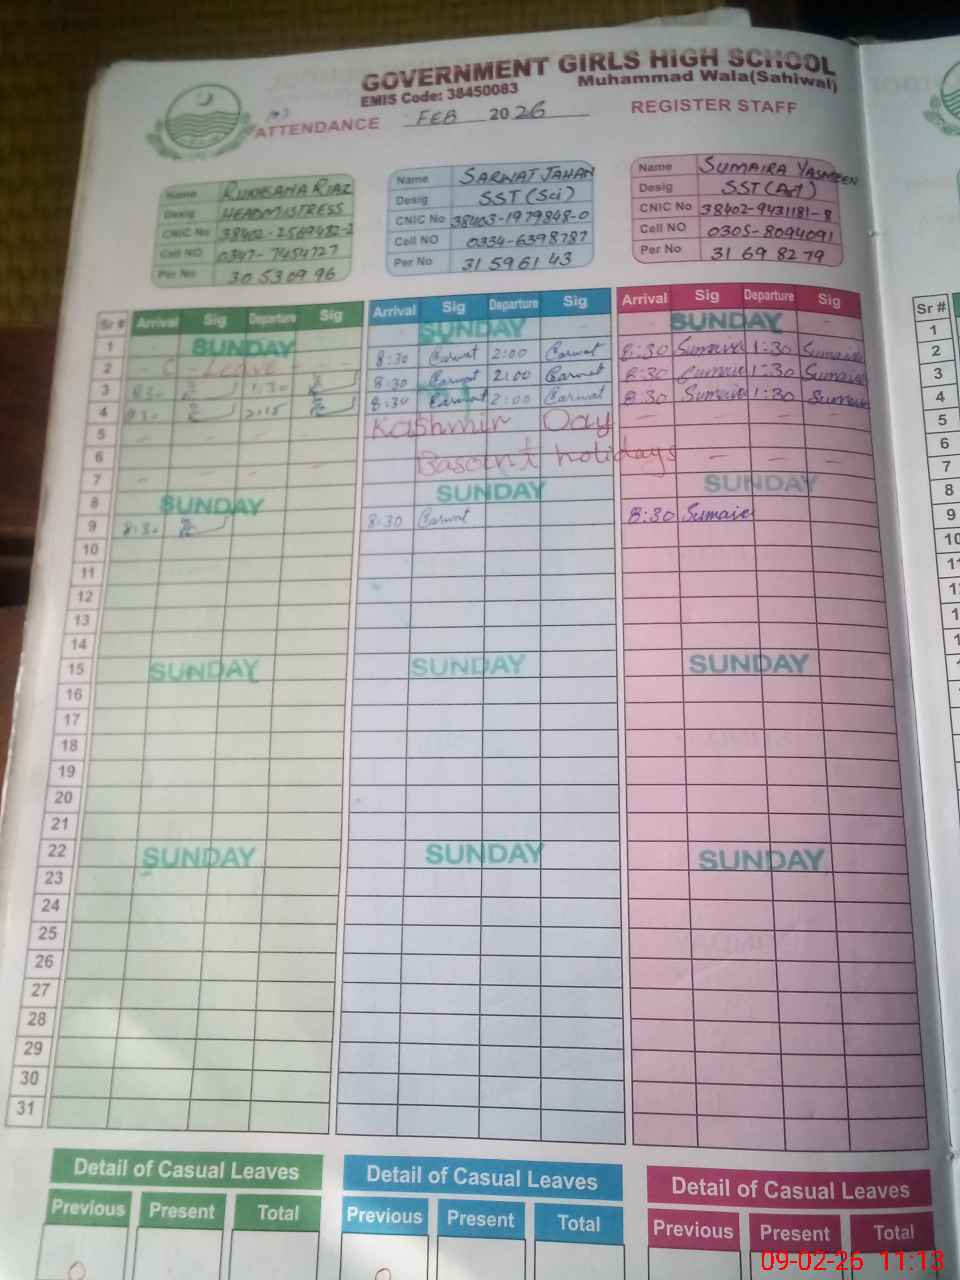 GOVERNMENT GIRLS HIGH SCHOOL
EMIS Code: 38450083 Muhammad Wala(Sahiwal)
ATTENDANCE FEB 2026 REGISTER STAFF
Name RUKHSANA RIAZ
Desig HEADMISTRESS
CNIC No 38402-2569482-2
Cell NO 0347-7454727
Per No 30530996
Name SARWAT JAHAN
Desig SST (Sci)
CNIC No 38403-1979848-0
Cell NO 0334-6398787
Per No 31596143
Name SUMAIRA YASMEEN
Desig SST (Art)
CNIC No 38402-9431181-8
Cell NO 0305-8094091
Per No 31698279
Sr # Arrival Sig Departure Sig Arrival Sig Departure Sig Arrival Sig Departure Sig Sr #
1 SUNDAY SUNDAY SUNDAY 1
2 C Leave 8:30 Carwat 2:00 Carwat 8:30 Sumaira 1:30 Sumaira 2
3 8:30 1:30 8:30 Carwat 2:00 Carwat 8:30 Sumaira 1:30 Sumaira 3
4 8:30 2:15 8:30 Carwat 2:00 Carwat 8:30 Sumaira 1:30 Sumaira 4
5 Kashmir Day 5
6 Basant holidays 6
7 7
8 SUNDAY SUNDAY SUNDAY 8
9 8:30 8:30 Carwat 8:30 Sumaira 9
10 10
11
12
13
14
15 SUNDAY SUNDAY SUNDAY
16
17
18
19
20
21
22 SUNDAY SUNDAY SUNDAY
23
24
25
26
27
28
29
30
31
Detail of Casual Leaves Detail of Casual Leaves Detail of Casual Leaves
Previous Present Total Previous Present Total Previous Present Total
09-02-26 11:13